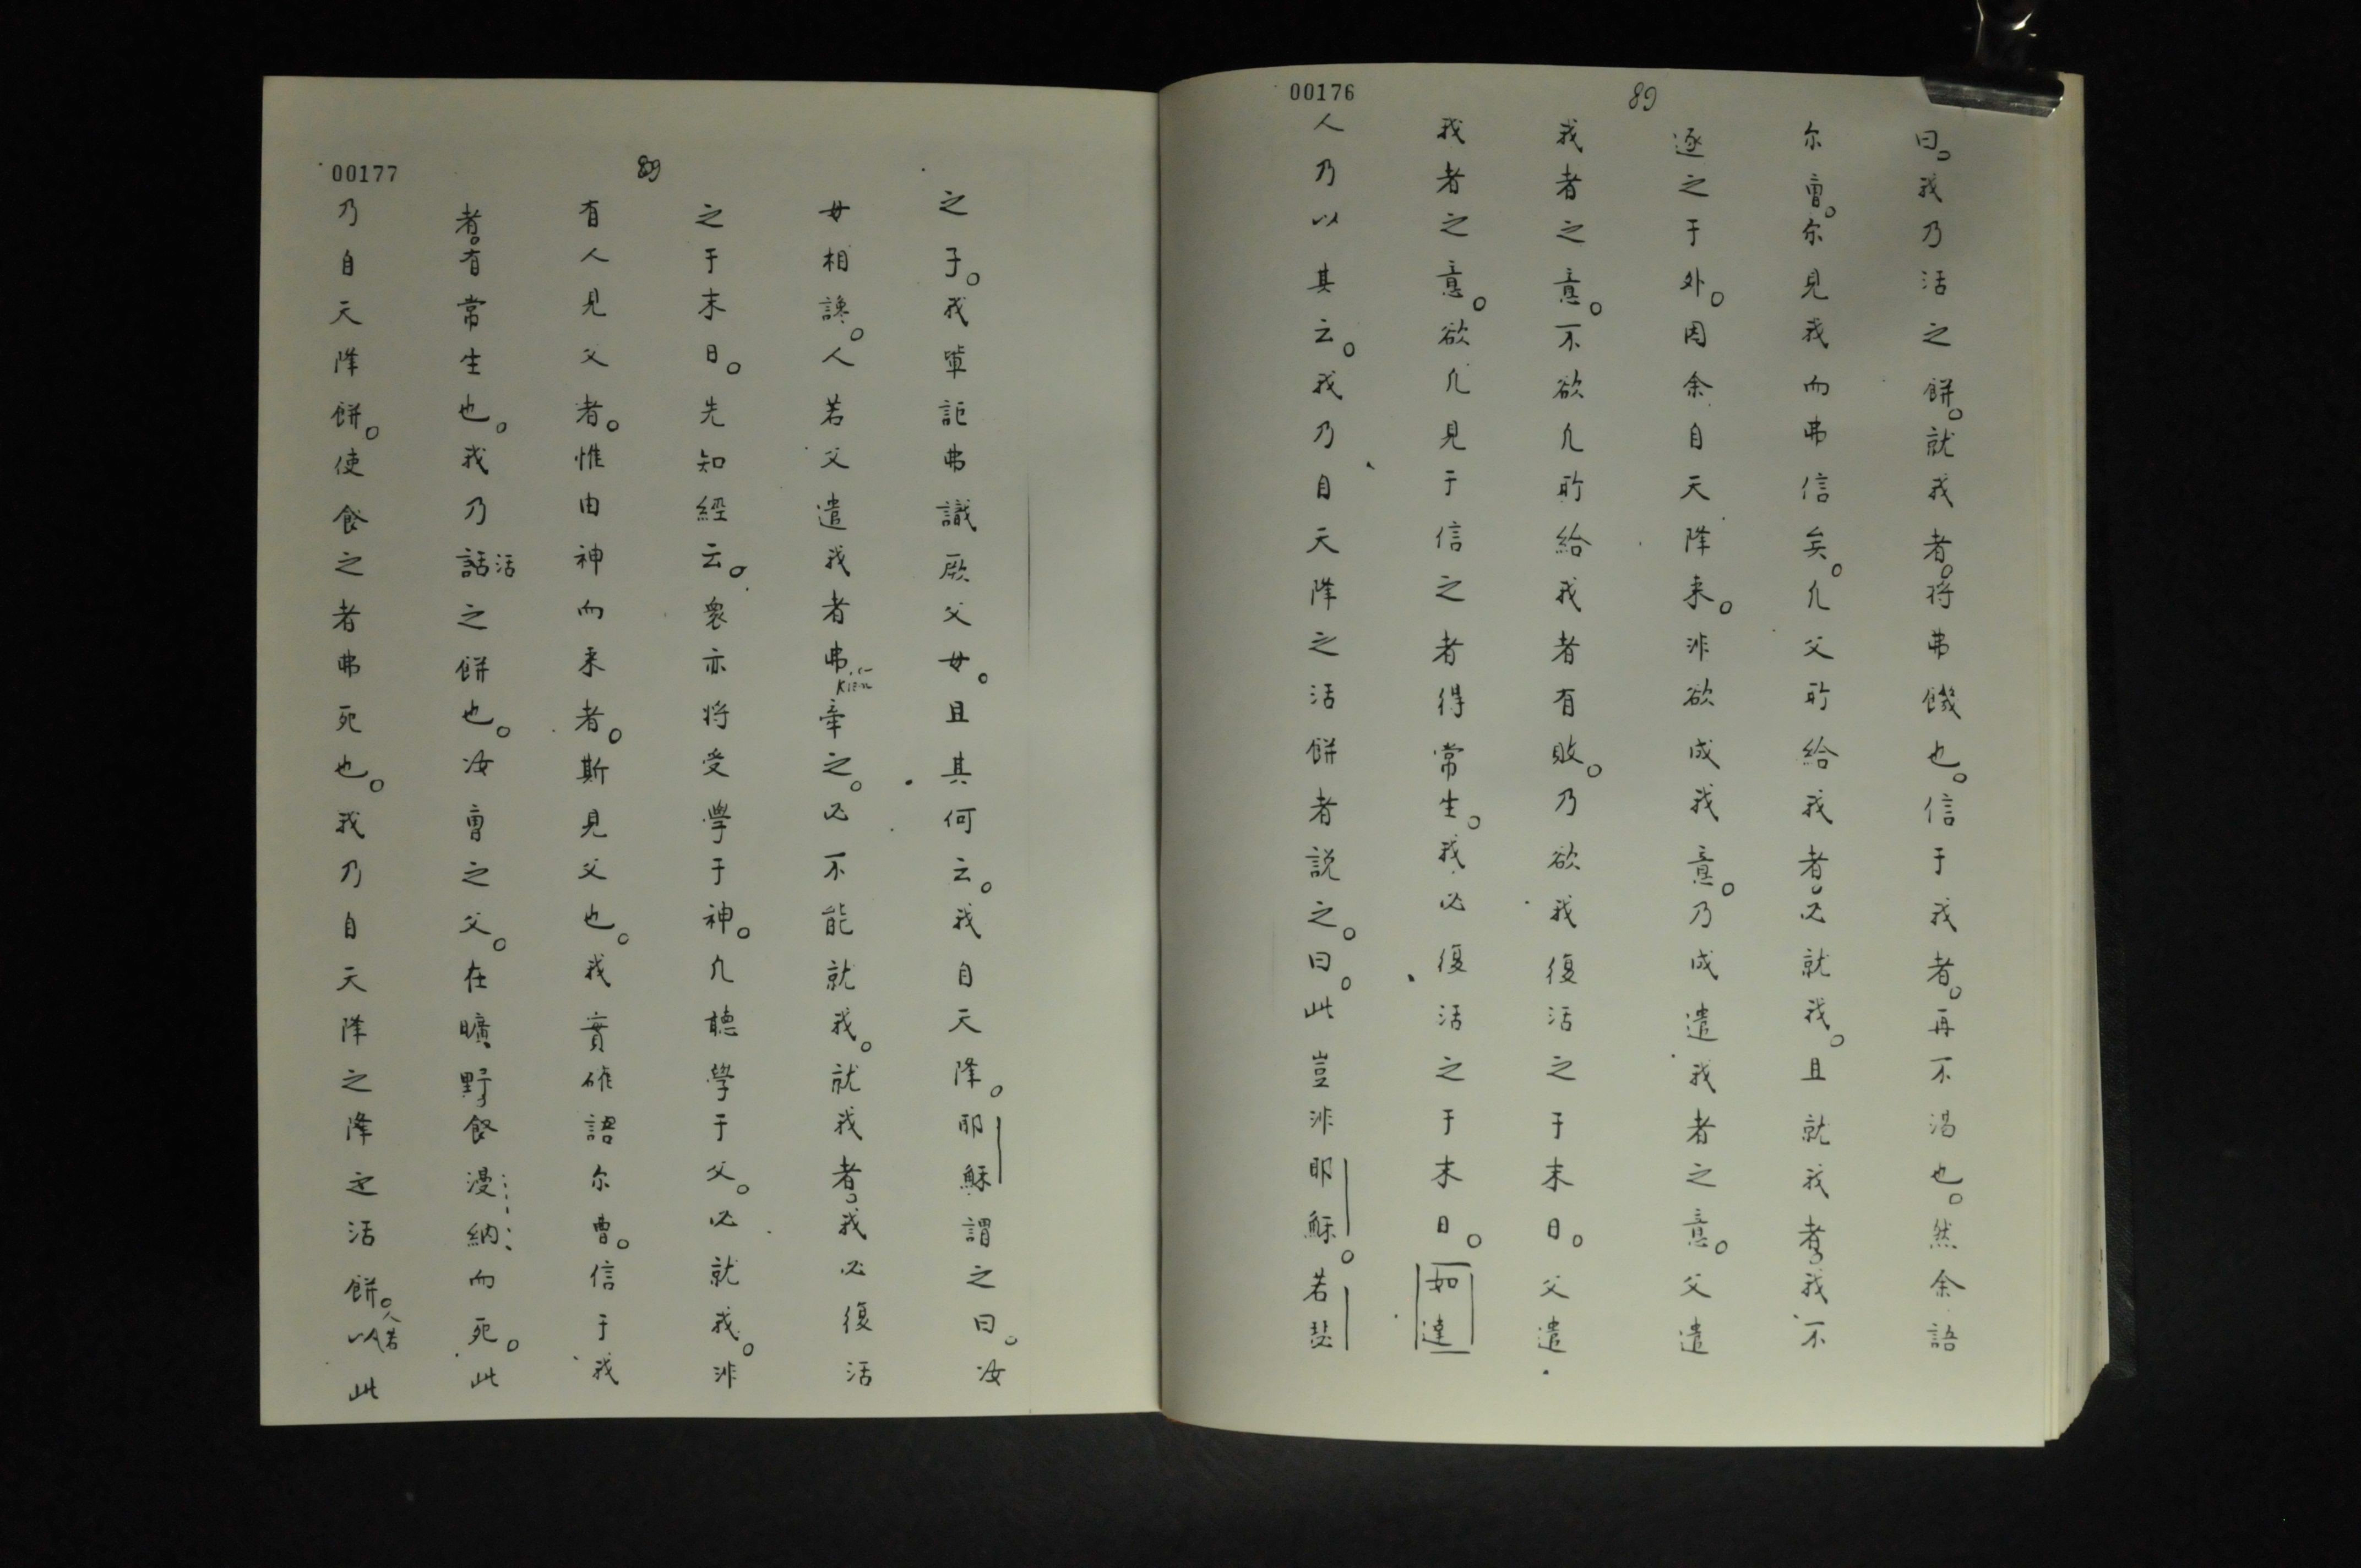 00176
89
曰。我乃活之餅。就我者。将弗饑也。信于我者。再不渴也。然余語
尔曹。尔見我而弗信矣。凢父所給我者。必就我。且就我者。我不
逐之于外。因余自天降来。非欲成我意。乃成遣我者之意。父遣
我者之意。不欲凢所給我者有敗。乃欲我復活之于末日。父遣
我者之意。欲凢見于信之者得常生。我必復活之于末日。如達
人乃以其云。我乃自天降之活餅者説之。曰。此豈非耶穌。若瑟
00177
89
之子。我輩詎弗識厥父母。且其何云。我自天降。耶穌謂之曰。汝
毋相讒。人若父遣我者弗牽之。必不能就我。就我者。我必復活
kien
之于末日。先知經云。衆亦将受學于神。凢聽學于父。必就我。非
有人見父者。惟由神而来者。斯見父也。我實確語尔曹。信于我
者。有常生也。我乃話之餅也。汝曹之父。在曠野食漫納而死。此
活
乃自天降餅。使食之者弗死也。我乃自天降之降之活餅。以此
人若